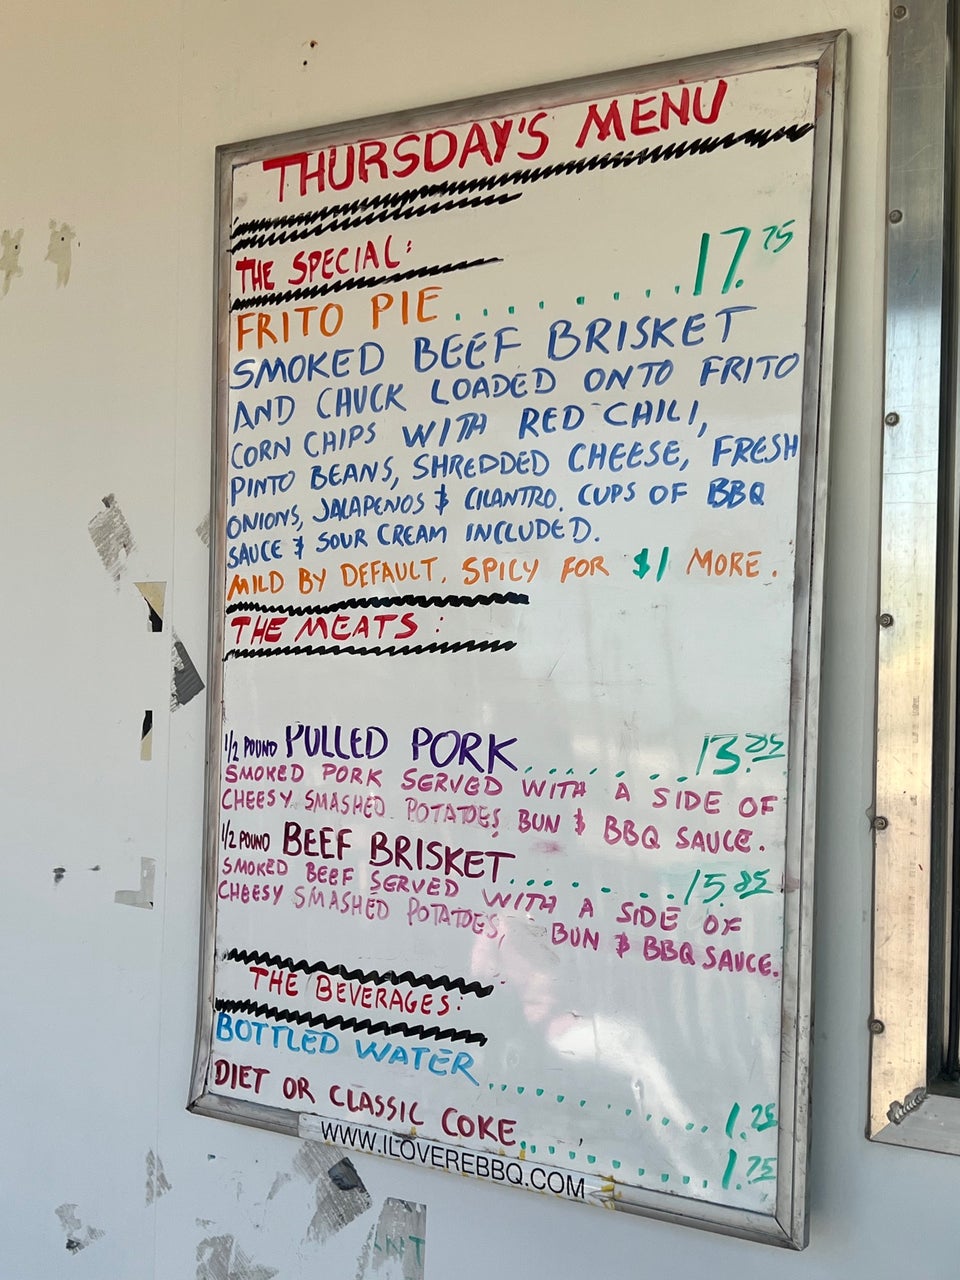 THURSDAY'S MENU
THE SPECIAL:
FRITO PIE......... 17.75
SMOKED BEEF BRISKET
AND CHUCK LOADED ONTO FRITO
CORN CHIPS WITH RED CHILI,
PINTO BEANS, SHREDDED CHEESE, FRESH
ONIONS, JALAPENOS & CILANTRO. CUPS OF BBQ
SAUCE & SOUR CREAM INCLUDED.
MILD BY DEFAULT. SPICY FOR $1 MORE.
THE MEATS:
1/2 POUND PULLED PORK......... 13.85
SMOKED PORK SERVED WITH A SIDE OF
CHEESY SMASHED POTATOES, BUN & BBQ SAUCE.
1/2 POUND BEEF BRISKET......... 15.85
SMOKED BEEF SERVED WITH A SIDE OF
CHEESY SMASHED POTATOES, BUN & BBQ SAUCE.
THE BEVERAGES:
BOTTLED WATER............... 1.25
DIET OR CLASSIC COKE............ 1.75
WWW.ILOVEREBBQ.COM